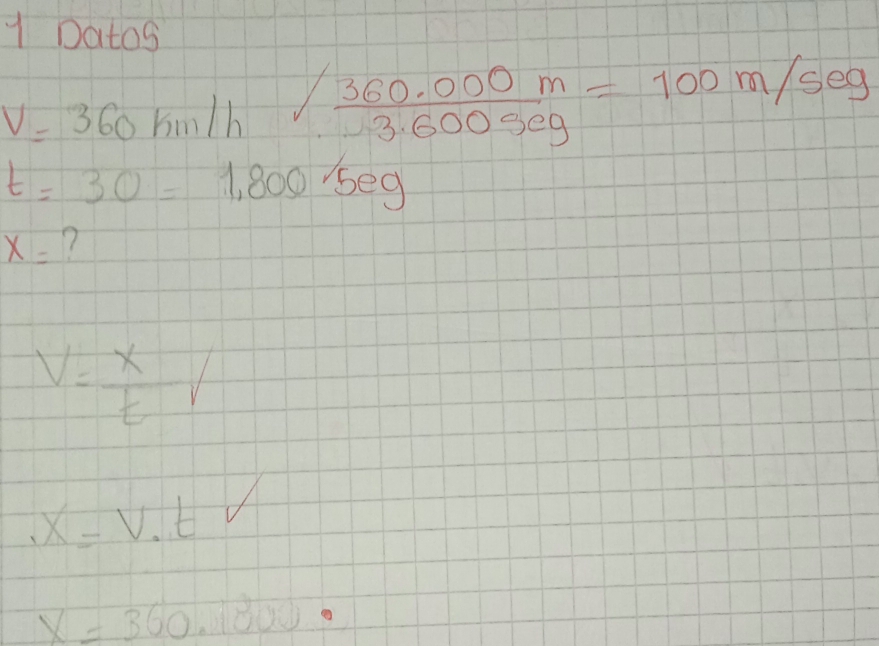 1 Datos
V = 360 Km/h ✓ 360.000 m / 3.600 seg = 100 m/seg
t = 30 = 1,800 seg
x = ?
V = x / t ✓
.X = V.t ✓
X = 360.1800.